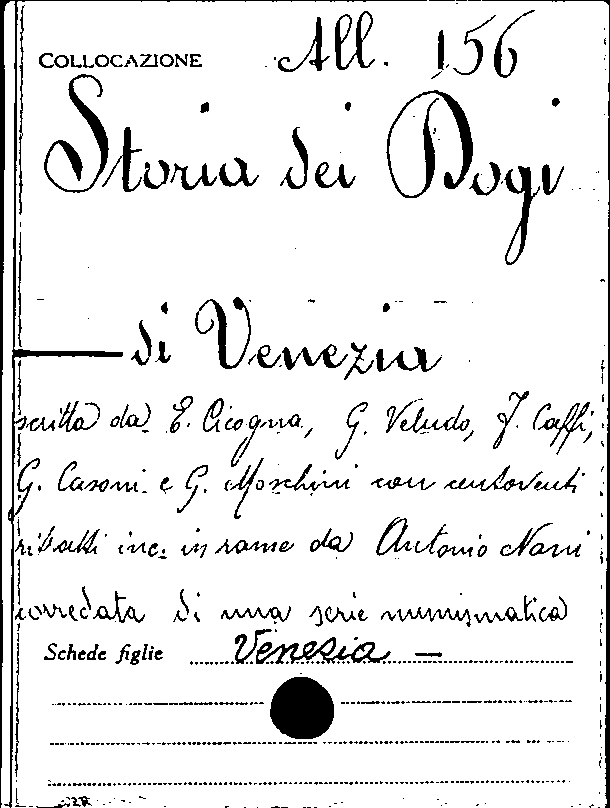 COLLOCAZIONE All. 156
Storia dei Dogi
di Venezia
scritta da E. Cicogna, G. Veludo, J. Caffi,
G. Casoni e G. Moschini con centoventi
ritratti inc. in rame da Antonio Nani
corredata di una serie numismatica
Schede figlie Venezia —